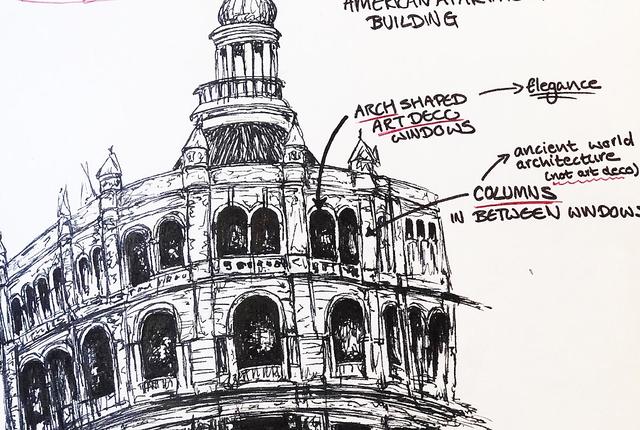 AMERICAN
BUILDING
ARCH SHAPED → elegance
ART DECO
WINDOWS
ancient world
architecture
(not art deco)
COLUMNS
IN BETWEEN WINDOWS